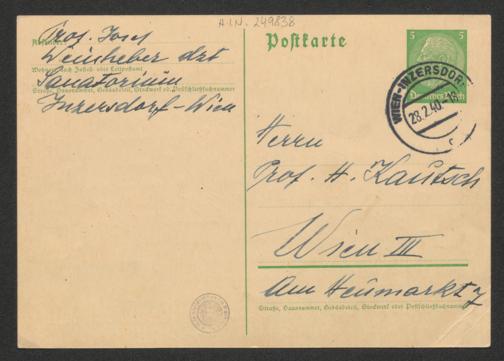 A.I.N. 249838
Prof. Josef
Absender:
Weinheber dzt
Wohnort, auch Zustell- oder Leitpostamt
Sanatorium
Straße, Hausnummer, Gebäudeteil, Stockwerk od. Postschließfachnummer
Inzersdorf-Wien
Postkarte
5 5
Deutsches Reich
WIEN-INZERSDORF
28.2.40
Herrn
Prof. H. Kautsch
Wien III
Am Heumarkt 7
Straße, Hausnummer, Gebäudeteil, Stockwerk oder Postschließfachnummer